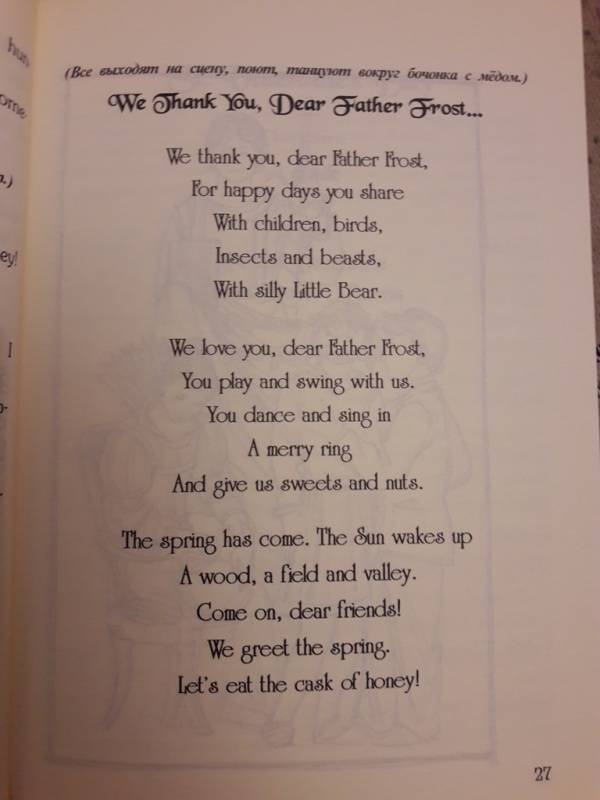 (Все выходят на сцену, поют, танцуют вокруг бочонка с мёдом.)
We Thank You, Dear Father Frost...
We thank you, dear Father Frost,
For happy days you share
With children, birds,
Insects and beasts,
With silly Little Bear.
We love you, dear Father Frost,
You play and swing with us.
You dance and sing in
A merry ring
And give us sweets and nuts.
The spring has come. The Sun wakes up
A wood, a field and valley.
Come on, dear friends!
We greet the spring.
Let's eat the cask of honey!
27